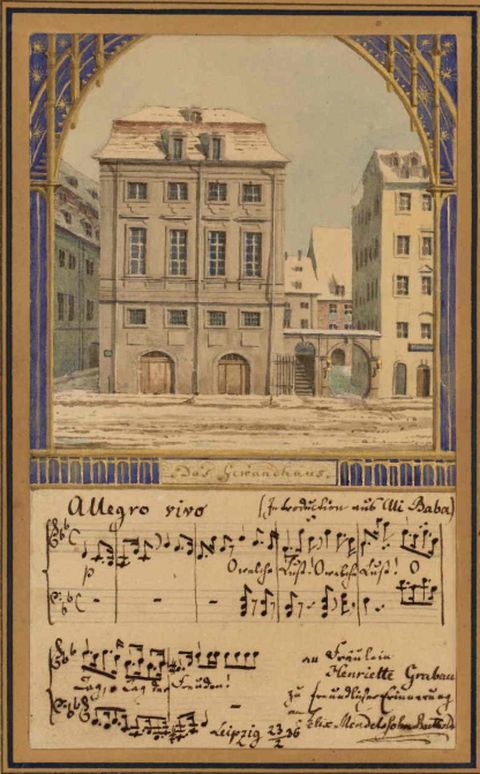 Das Gewandhaus.
Allegro vivo (Introduction aus Ali Baba)
p
O welche Lust! O welche Lust! O
Tag, o Tag der Freuden!
an Fräulein
Henriette Grabau
zu freundlicher Erinnerung
an
Felix Mendelssohn Bartholdy
Leipzig 23/2 36